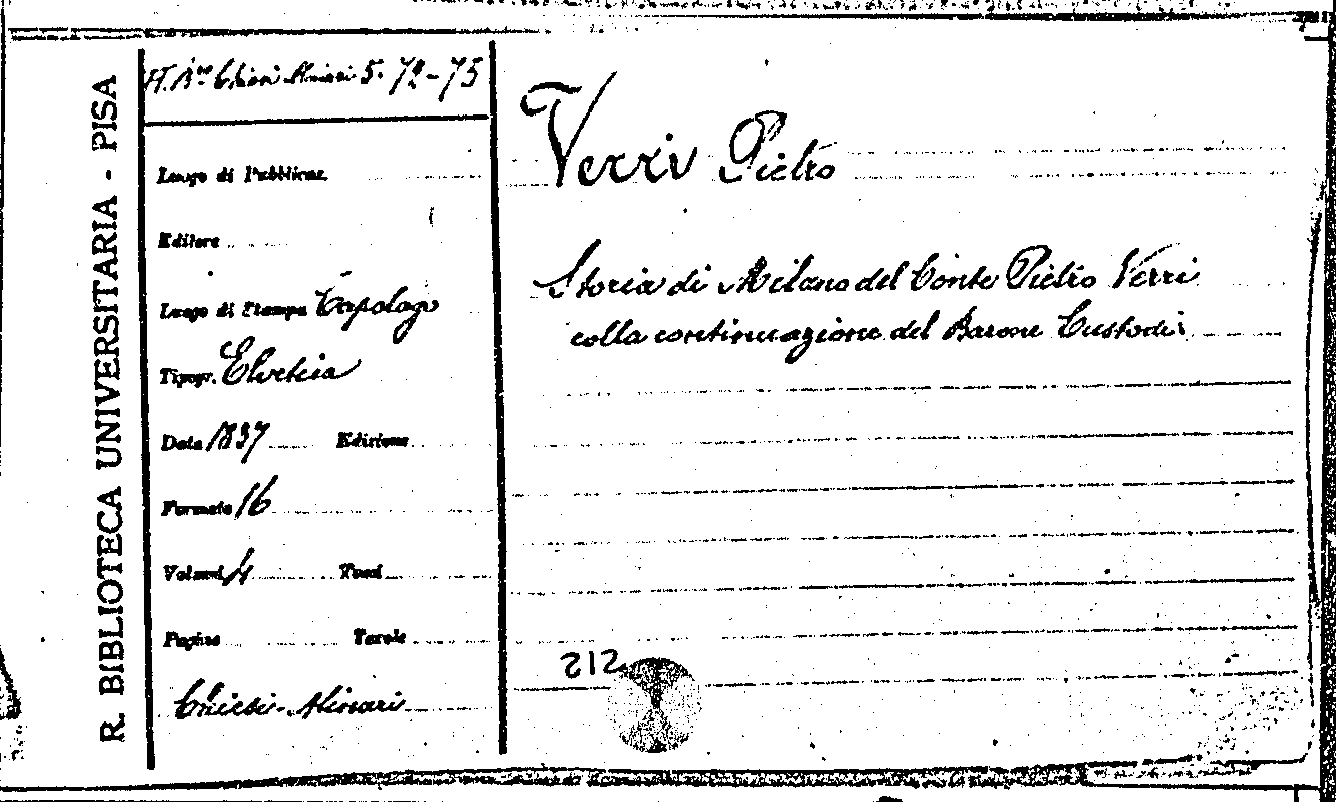 R. BIBLIOTECA UNIVERSITARIA - PISA
5. 72-75
Luogo di Pubblicaz.
Editore
Luogo di Stampa Capolago
Tipogr. Elvetica
Data 1837 Edizione
Formato 16
Volumi 4 Tomi
Pagine Tavole
Verri Pietro
Storia di Milano del Conte Pietro Verri
colla continuazione del Barone Custodi
212